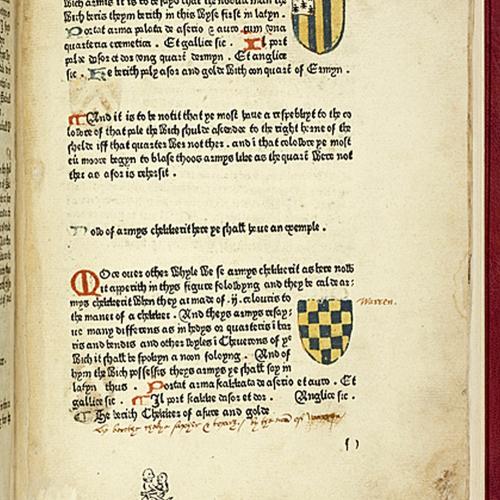 Wich armis it is to be sayd that the nobull man the
Wich beris theym berith in this Wyse first in latyn .
Portat arma palata de asorio & auro cum una
quarteria eremetica . Et gallice sic . Il port
pale dasor et dor ung quart dermyn . Et anglice
sic . He berith paly asor and golde With oon quart of Ermyn .
And it is to be notit that ye most have a respeblyt to the co
lowre of that pale the Wich shulde ascende to the right horne of the
shelde iff that quarter Wer not ther . and i that colowre ye most
eu moore begyn to blase thoos armys like as the quart Were not
ther as afor is rehersit .
Now of armys chekkerit here ye shall haue an exemple .
Moor ouer other Whyle We se armys chekkerit as here now
it apperith in thys figure folowyng and they be cald ar-
mys chekkerit When they ar made of . ij . colouris to
the maner of a chekker . And theys armys resay-
ue many differens as in bordys or quarteris i bar
ris and bendis and other
Wich it shall be spokyn a noon foloyng . And of
hym the Wich possessis theys armys ye shall say in
latyn thus . Portat arma scaccata de asorio et auro . Et
gallice sic . Il port dasor et dor . Anglice sic .
He berith Chekker of asure and golde
Warren.